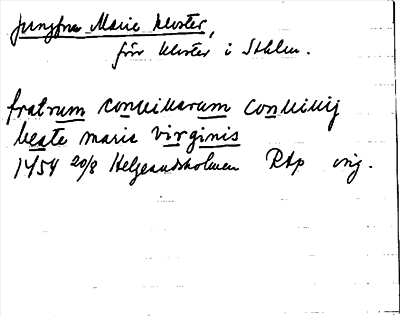 Jungfru Marie kloster,
förr kloster i Sthlm.
fratrum conuiuarum conuiuij
beate marie virginis
1454 20/8 Helgeandsholmen Rap orig.